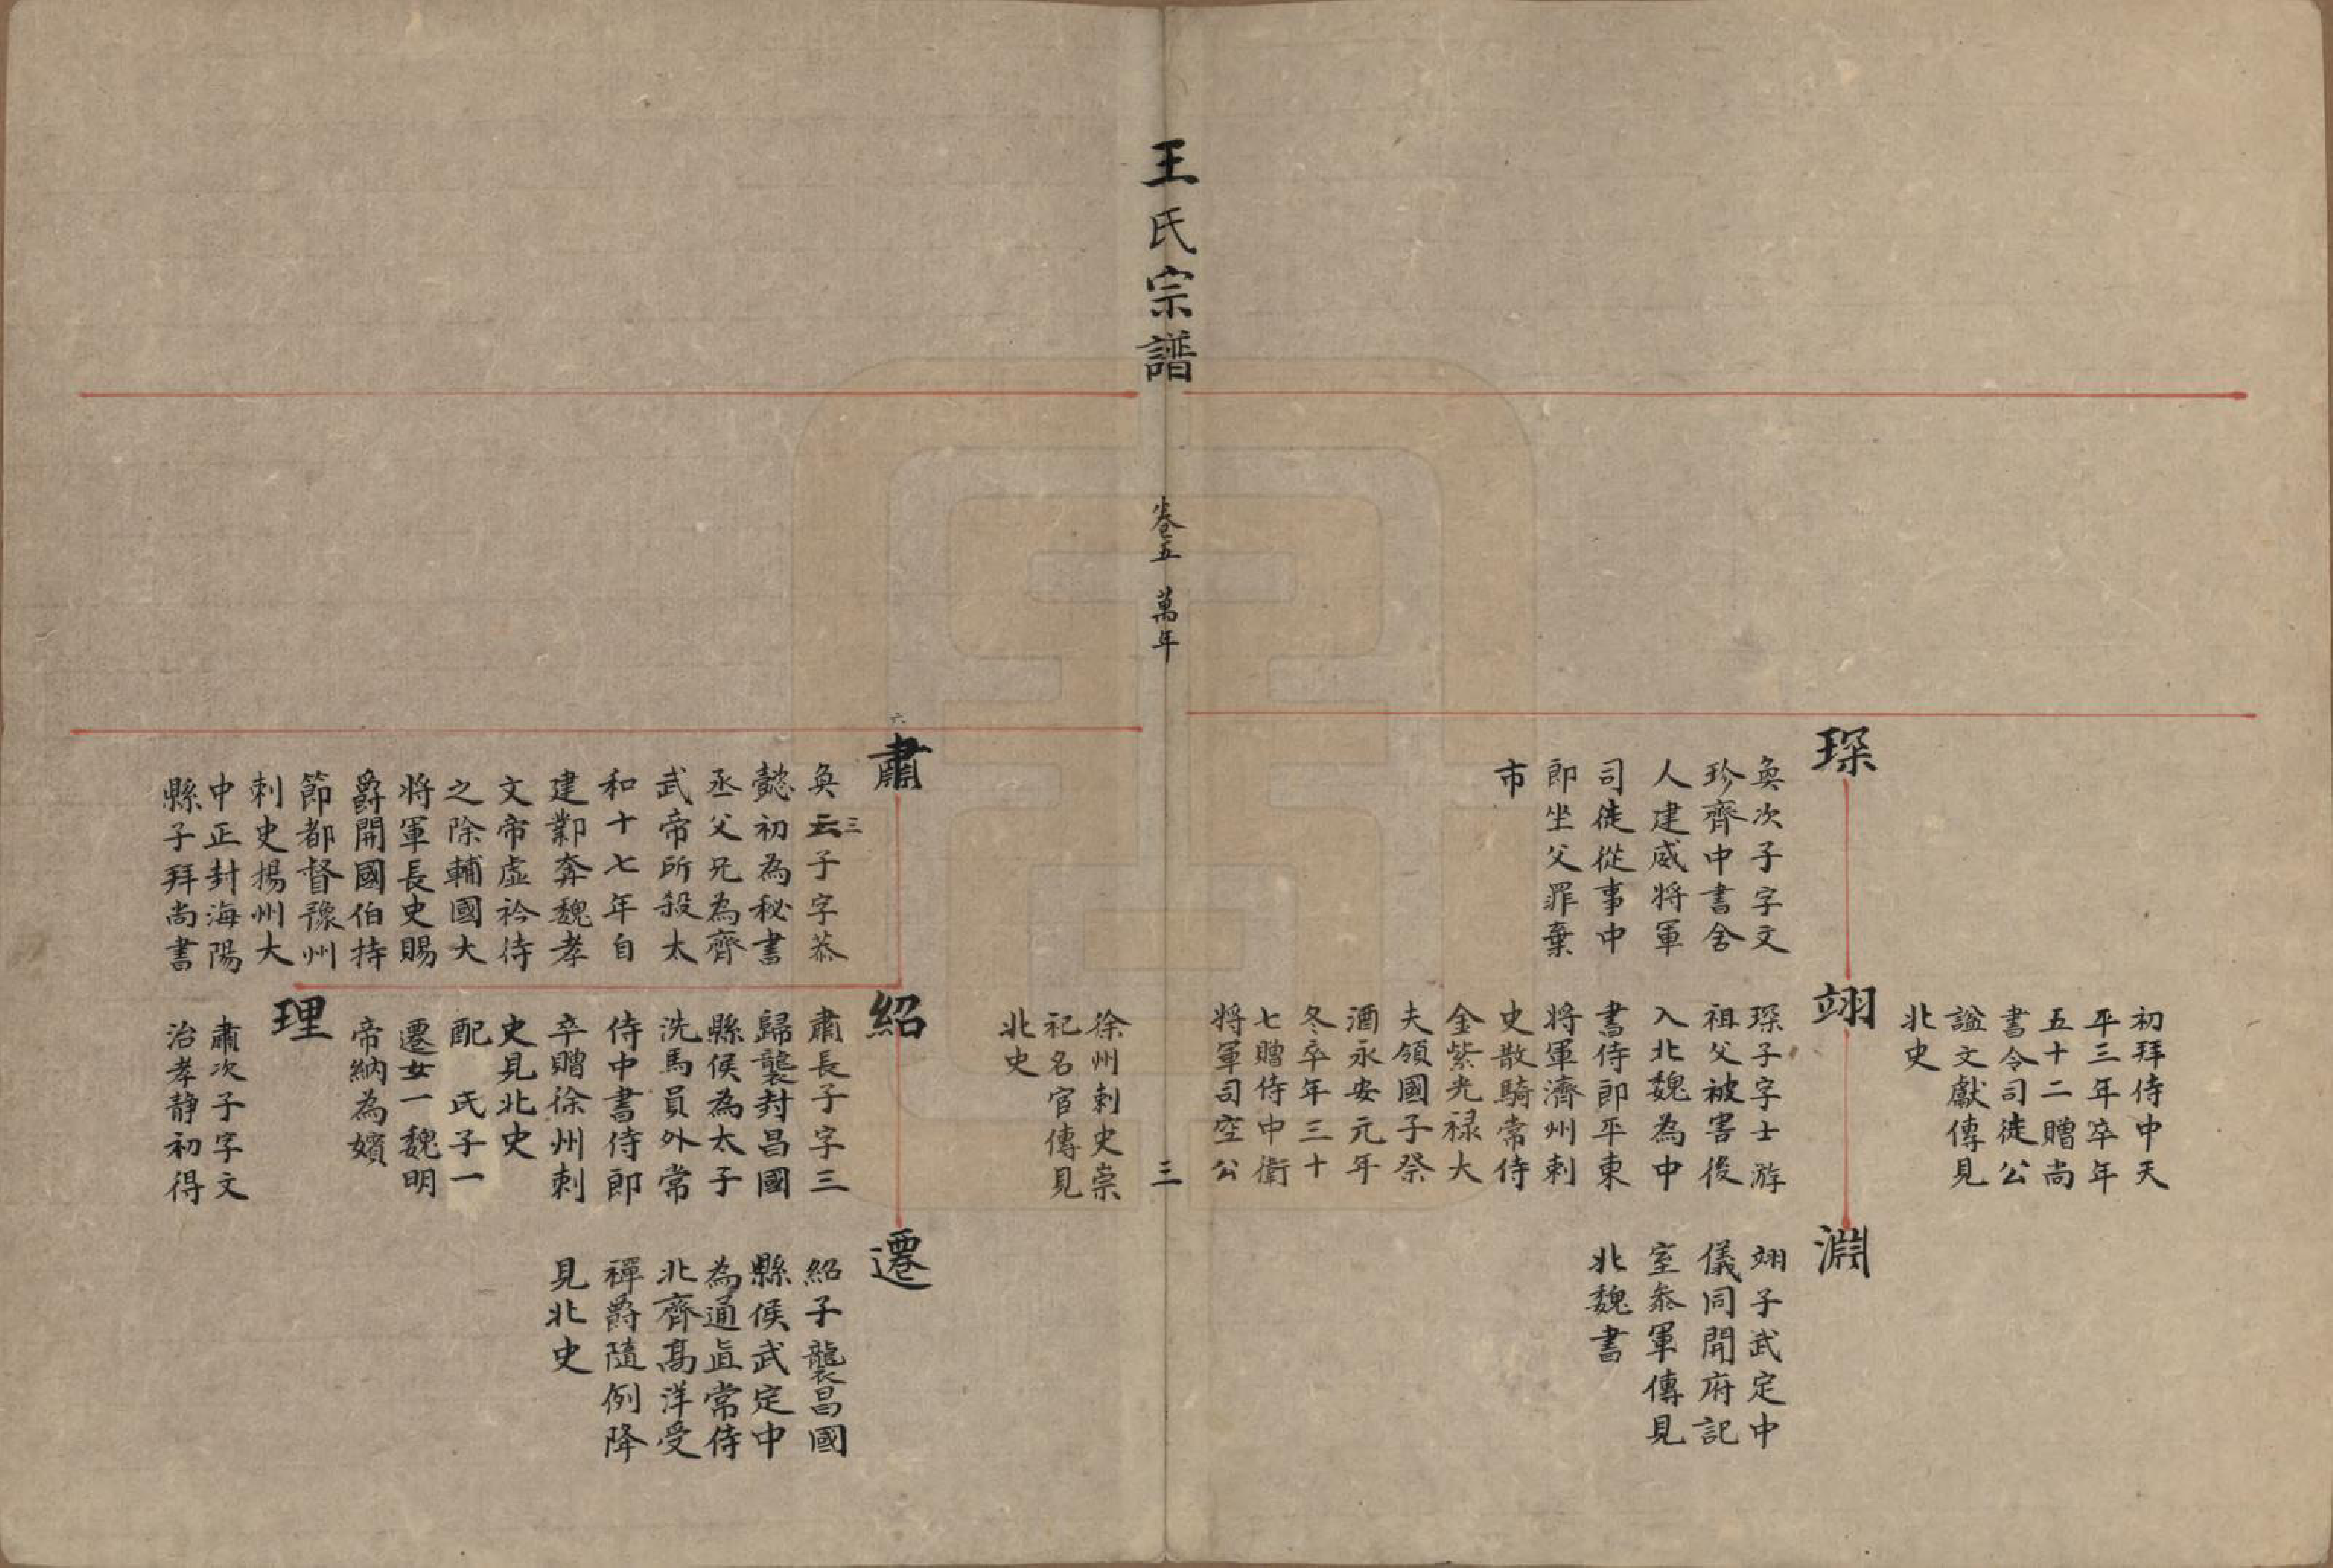 初拜侍中天
平三年卒年
五十二贈尚
書令司徒公
諡文獻傳見
北史
琛
奐次子字文
珍齊中書舍
人建威將軍
司徒從事中
郎坐父罪棄
市
翊
琛子字士游
祖父被害後
入北魏為中
書侍郎平東
將軍濟州刺
史散騎常侍
金紫光禄大
夫領國子祭
酒永安元年
冬卒年三十
七贈侍中衛
將軍司空公
淵
翊子武定中
儀同開府記
室叅軍傳見
北魏書
王氏宗譜
卷五
萬年
三
徐州刺史崇
祀名宦傳見
北史
六
肅
奐三子字恭
懿初為秘書
丞父兄為齊
武帝所殺太
和十七年自
建鄴奔魏孝
文帝虛衿待
之除輔國大
將軍長史賜
爵開國伯持
節都督豫州
刺史揚州大
中正封海陽
縣子拜尚書
紹
肅長子字三
歸襲封昌國
縣侯為太子
洗馬員外常
侍中書侍郎
卒贈徐州刺
史見北史
配 氏子一
遷女一魏明
帝納為嬪
理
肅次子字文
治孝静初得
遷
紹子襲昌國
縣侯武定中
為通直常侍
北齊髙洋受
禪爵隨例降
見北史